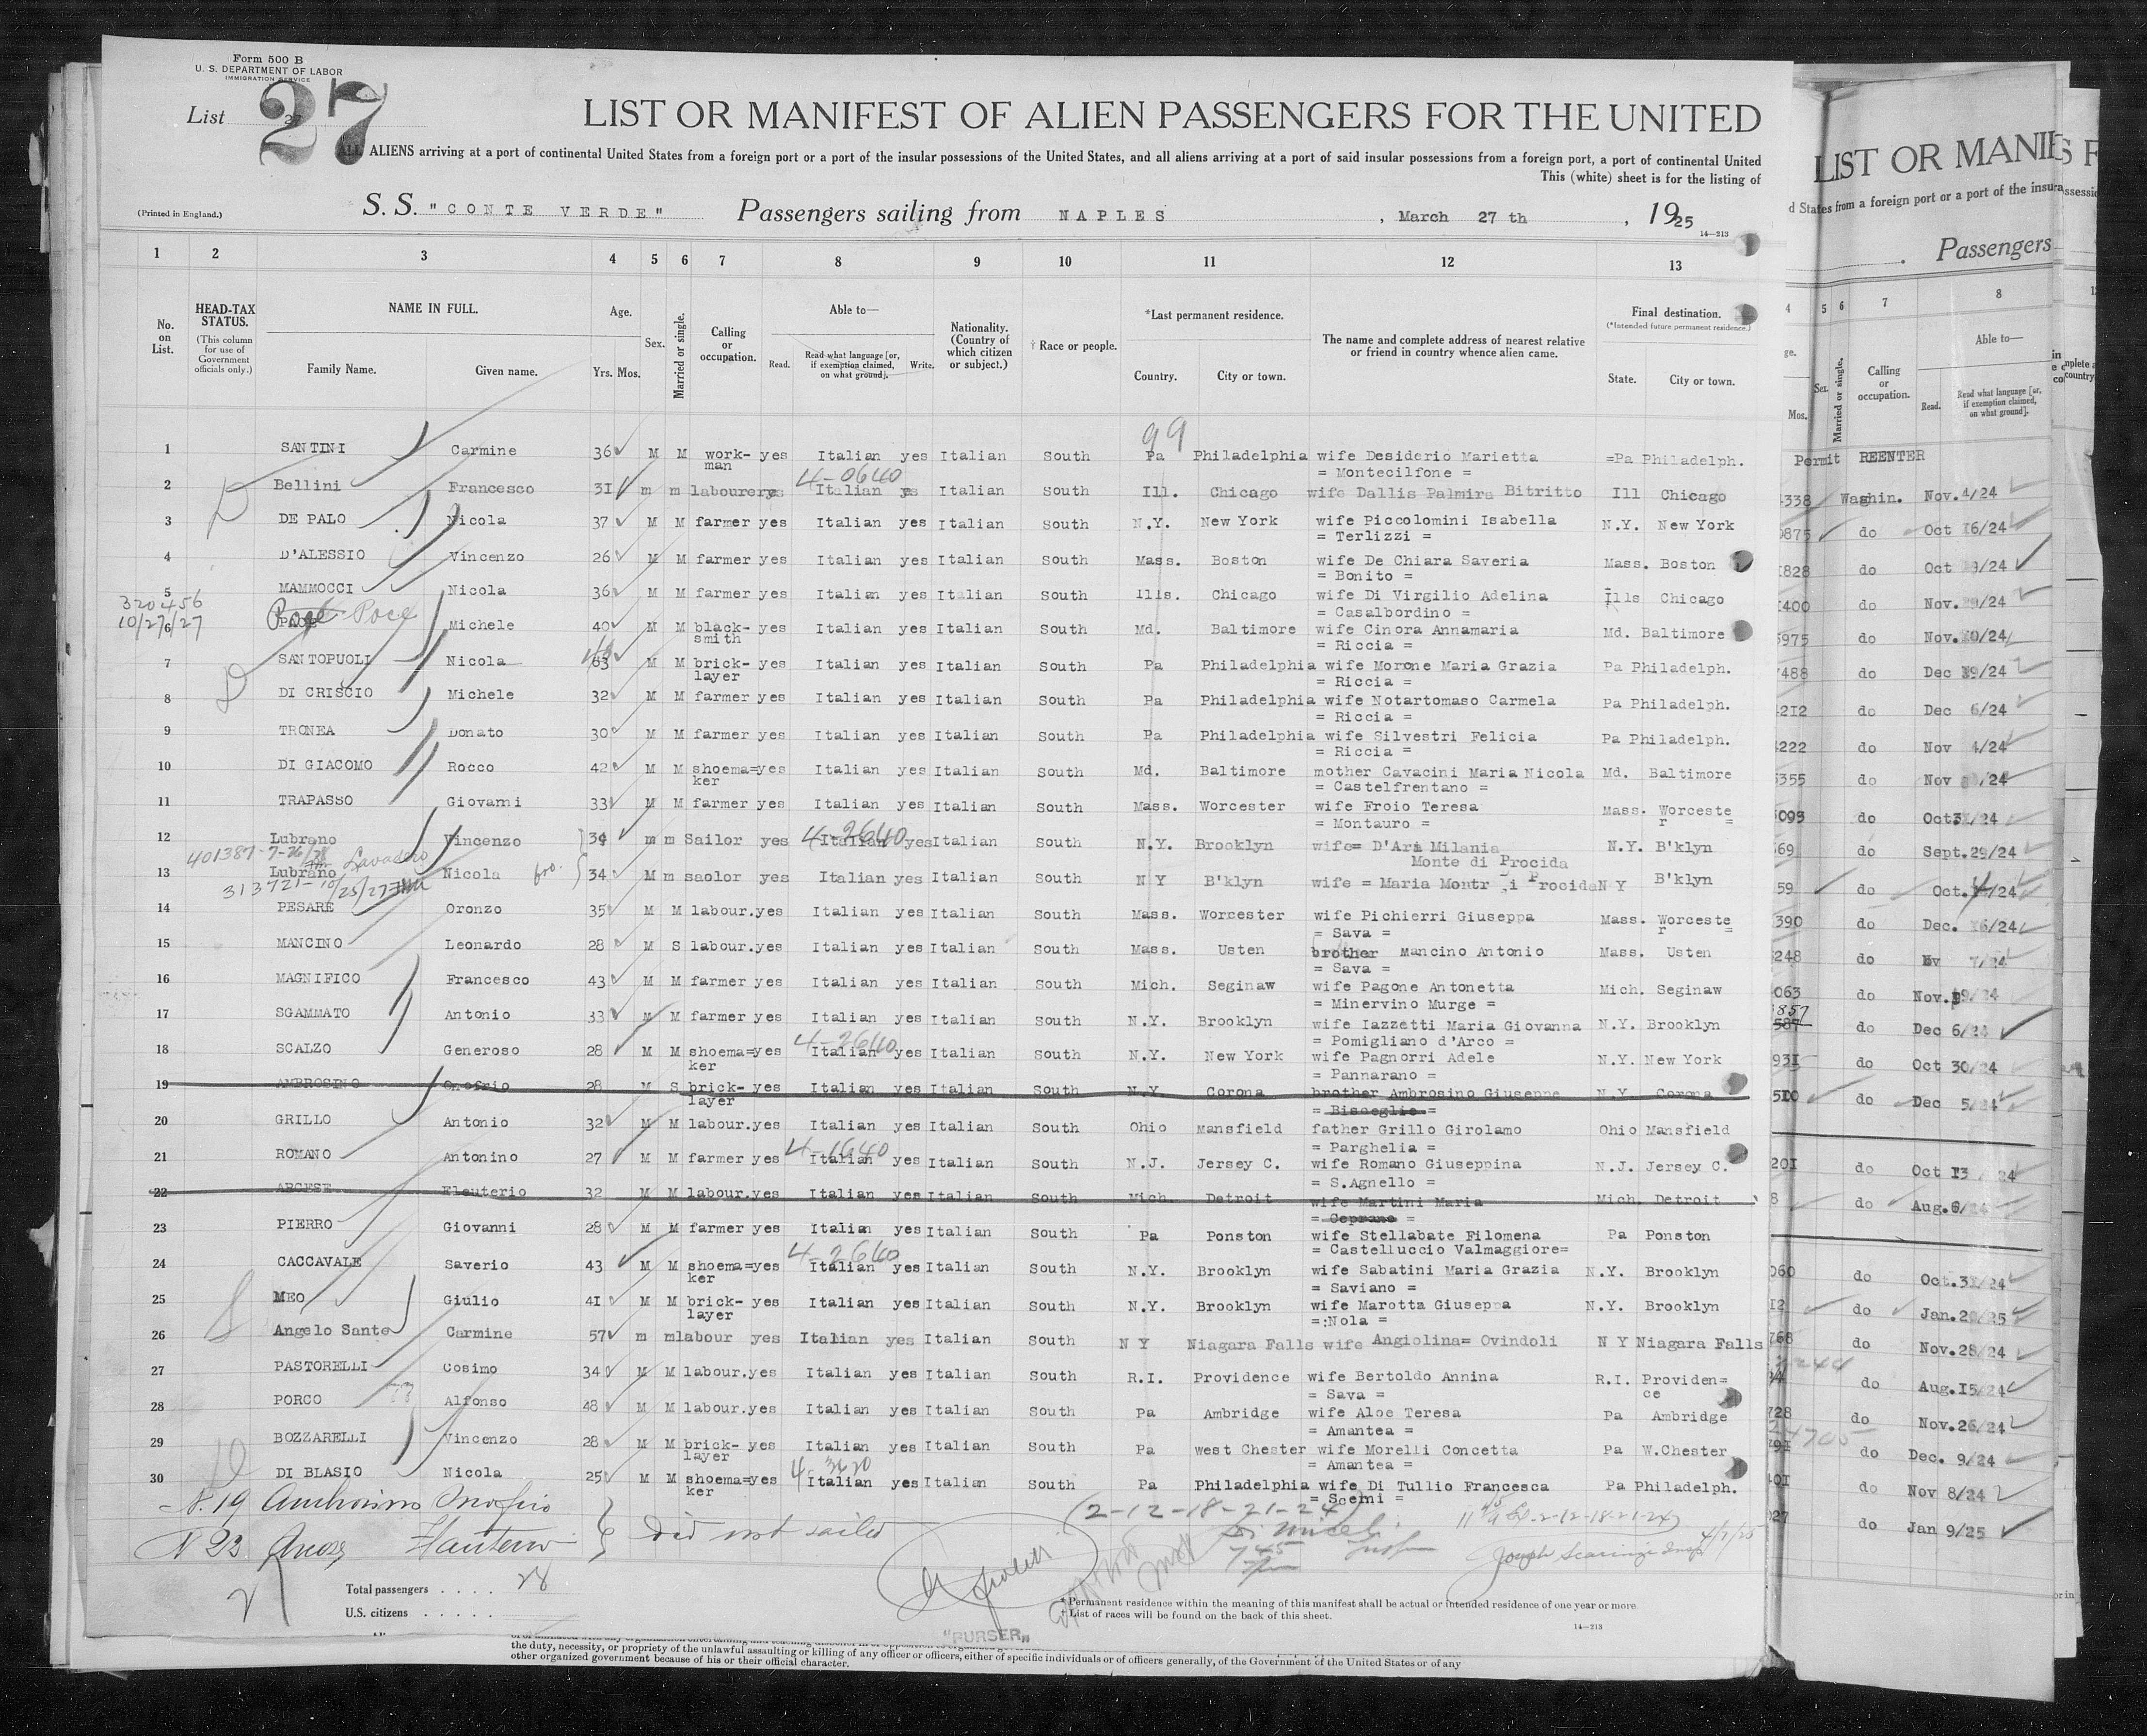 Form 500 B
U. S. DEPARTMENT OF LABOR
IMMIGRATION SERVICE
List 27
LIST OR MANIFEST OF ALIEN PASSENGERS FOR THE UNITED
ALL ALIENS arriving at a port of continental United States from a foreign port or a port of the insular possessions of the United States, and all aliens arriving at a port of said insular possessions from a foreign port, a port of continental United
This (white) sheet is for the listing of
(Printed in England.)
S. S. "CONTE VERDE" Passengers sailing from NAPLES , March 27 th , 1925
14—213
1 2 3 4 5 6 7 8 9 10 11 12 13
No. on List.
HEAD-TAX STATUS.
(This column for use of Government officials only.)
NAME IN FULL.
Family Name. Given name.
Age.
Yrs. Mos.
Sex.
Married or single.
Calling or occupation.
Able to—
Read. Read what language [or, if exemption claimed, on what ground]. Write.
Nationality. (Country of which citizen or subject.)
† Race or people.
*Last permanent residence.
Country. City or town.
The name and complete address of nearest relative or friend in country whence alien came.
Final destination.
(*Intended future permanent residence.)
State. City or town.
99
1 SANTINI Carmine 36 M M work- yes Italian yes Italian South Pa Philadelphia wife Desiderio Marietta =Pa Philadelph.
man = Montecilfone =
4-0640
2 Bellini Francesco 31 m m labourer yes Italian yes Italian South Ill. Chicago wife Dallis Palmira Bitritto Ill Chicago
3 DE PALO Nicola 37 M M farmer yes Italian yes Italian South N.Y. New York wife Piccolomini Isabella N.Y. New York
= Terlizzi =
4 D'ALESSIO Vincenzo 26 M M farmer yes Italian yes Italian South Mass. Boston wife De Chiara Saveria Mass. Boston
= Bonito =
5 MAMMOCCI Nicola 36 M M farmer yes Italian yes Italian South Ills. Chicago wife Di Virgilio Adelina Ills Chicago
= Casalbordino =
320456
10/27/27
Poce
6 PACE Michele 40 M M black- yes Italian yes Italian South Md. Baltimore wife Cinora Annamaria Md. Baltimore
smith = Riccia =
7 SANTOPUOLI Nicola 63 M M brick- yes Italian yes Italian South Pa Philadelphia wife Morone Maria Grazia Pa Philadelph.
layer = Riccia =
8 DI CRISCIO Michele 32 M M farmer yes Italian yes Italian South Pa Philadelphia wife Notartomaso Carmela Pa Philadelph.
= Riccia =
9 TRONEA Donato 30 M M farmer yes Italian yes Italian South Pa Philadelphia wife Silvestri Felicia Pa Philadelph.
= Riccia =
10 DI GIACOMO Rocco 42 M M shoema= yes Italian yes Italian South Md. Baltimore mother Cavacini Maria Nicola Md. Baltimore
ker = Castelfrentano =
11 TRAPASSO Giovanni 33 M M farmer yes Italian yes Italian South Mass. Worcester wife Froio Teresa Mass. Worceste
= Montauro = r =
4-2640
12 Lubrano Vincenzo 34 m m Sailor yes Italian yes Italian South N.Y. Brooklyn wife= D'Ara Milania N.Y. B'klyn
Monte di Procida
401387-7-26/28 Lavadero
13 Lubrano Nicola bro. 34 M m saolor yes Italian yes Italian South N Y B'klyn wife = Maria Montr i Procida N Y B'klyn
313721-10/25/27
14 PESARE Oronzo 35 M M labour. yes Italian yes Italian South Mass. Worcester wife Pichierri Giuseppa Mass. Worceste
= Sava = r =
15 MANCINO Leonardo 28 M S labour. yes Italian yes Italian South Mass. Usten brother Mancino Antonio Mass. Usten
= Sava =
16 MAGNIFICO Francesco 43 M M farmer yes Italian yes Italian South Mich. Seginaw wife Pagone Antonetta Mich. Seginaw
= Minervino Murge =
17 SGAMMATO Antonio 33 M M farmer yes Italian yes Italian South N.Y. Brooklyn wife Iazzetti Maria Giovanna N.Y. Brooklyn
= Pomigliano d'Arco =
4-2640
18 SCALZO Generoso 28 M M shoema= yes Italian yes Italian South N.Y. New York wife Pagnorri Adele N.Y. New York
ker = Pannarano =
19 AMBROSINO Onofrio 28 M S brick- yes Italian yes Italian South N.Y. Corona brother Ambrosino Giuseppe N.Y. Corona
layer = Bisceglie =
20 GRILLO Antonio 32 M M labour. yes Italian yes Italian South Ohio Mansfield father Grillo Girolamo Ohio Mansfield
= Parghelia =
4-1640
21 ROMANO Antonino 27 M M farmer yes Italian yes Italian South N.J. Jersey C. wife Romano Giuseppina N.J. Jersey C.
= S.Agnello =
22 ARCESE Eleuterio 32 M M labour. yes Italian yes Italian South Mich. Detroit wife Martini Maria Mich. Detroit
= Ceprano =
23 PIERRO Giovanni 28 M M farmer yes Italian yes Italian South Pa Ponston wife Stellabate Filomena Pa Ponston
= Castelluccio Valmaggiore=
4-2640
24 CACCAVALE Saverio 43 M M shoema= yes Italian yes Italian South N.Y. Brooklyn wife Sabatini Maria Grazia N.Y. Brooklyn
ker = Saviano =
25 MEO Giulio 41 M M brick- yes Italian yes Italian South N.Y. Brooklyn wife Marotta Giuseppa N.Y. Brooklyn
layer =:Nola =
26 Angelo Sante Carmine 57 m m labour yes Italian yes Italian South N Y Niagara Falls wife Angiolina= Ovindoli N Y Niagara Falls
27 PASTORELLI Cosimo 34 M M labour. yes Italian yes Italian South R.I. Providence wife Bertoldo Annina R.I. Providen=
= Sava = ce
28 PORCO Alfonso 48 M M labour. yes Italian yes Italian South Pa Ambridge wife Aloe Teresa Pa Ambridge
= Amantea =
29 BOZZARELLI Vincenzo 28 M M brick- yes Italian yes Italian South Pa west Chester wife Morelli Concetta Pa W.Chester
layer = Amantea =
30 DI BLASIO Nicola 25 M M shoema= yes Italian yes Italian South Pa Philadelphia wife Di Tullio Francesca Pa Philadelph.
ker = Scemi =
N. 19 Ambrosino Onofrio
did not sailed
(2-12-18-21-24)
4/7/25
Total passengers . . . . 28
U.S. citizens . . . . .
* Permanent residence within the meaning of this manifest shall be actual or intended residence of one year or more
† List of races will be found on the back of this sheet.
14—213
"PURSER"
the duty, necessity, or propriety of the unlawful assaulting or killing of any officer or officers, either of specific individuals or of officers generally, of the Government of the United States or of any
other organized government because of his or their official character.
LIST OR MANIF
d States from a foreign port or a port of the insula
Passengers
4 5 6 7 8
Mos.
Sex.
Married or single.
Calling or occupation.
Able to—
Read. Read what language [or, if exemption claimed, on what ground].
Permit REENTER
4338 Washin. Nov. 4/24
9875 do Oct 16/24
1828 do Oct /24
1400 do Nov. /24
5975 do Nov. 20/24
7488 do Dec 19/24
4212 do Dec 6/24
4222 do Nov 4/24
5355 do Nov /24
5093 do Oct 31/24
69 do Sept. 29/24
59 do Oct. /24
390 do Dec. 16/24
5248 do 7/24
063 do Nov. 19/24
857
587 do Dec 6/24
931 do Oct 30/24
510 do Dec 5/24
201 do Oct 13 24
8 do Aug. 6/24
060 do Oct. 31/24
12 do Jan. 20/25
768 do Nov. 28/24
do Aug. 15/24
728 do Nov. 26/24
do Dec. 9/24
401 do Nov 8/24
927 do Jan 9/25